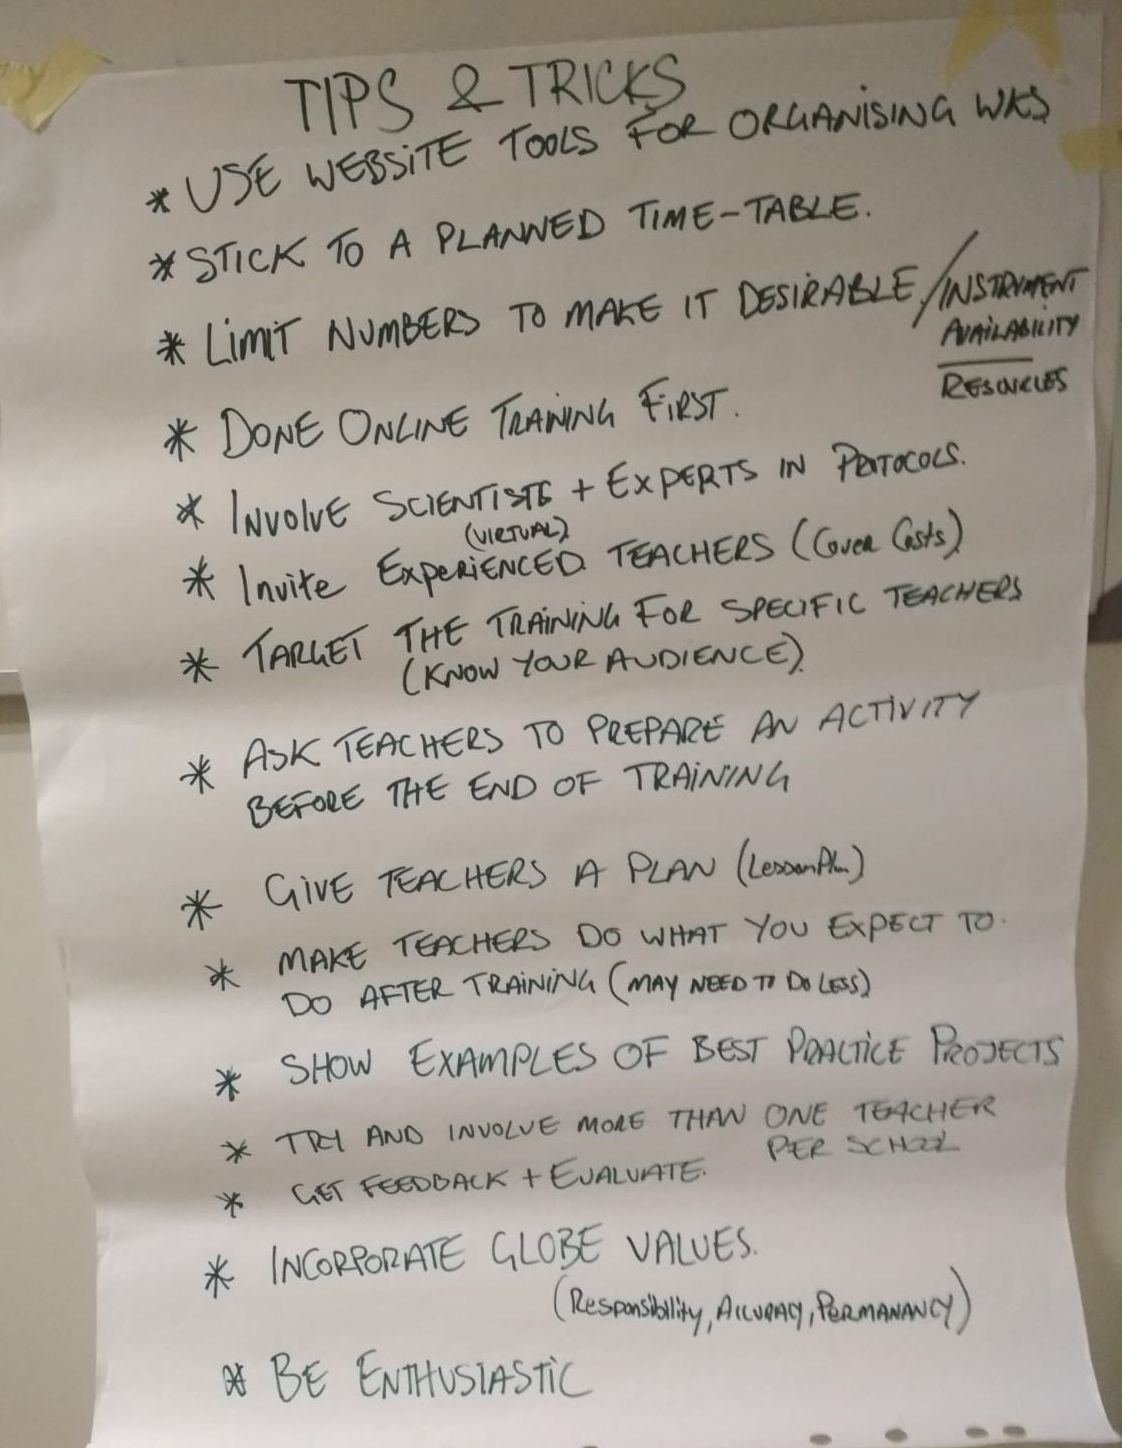 TIPS & TRICKS
* USE WEBSITE TOOLS FOR ORGANISING WKS
* STICK TO A PLANNED TIME-TABLE.
* LIMIT NUMBERS TO MAKE IT DESIRABLE / INSTRUMENT
AVAILABILITY
RESOURCES
* DONE ONLINE TRAINING FIRST.
* INVOLVE SCIENTISTS + EXPERTS IN PROTOCOLS.
(VIRTUAL)
* Invite EXPERIENCED TEACHERS (Cover Costs)
* TARGET THE TRAINING FOR SPECIFIC TEACHERS
(KNOW YOUR AUDIENCE)
* ASK TEACHERS TO PREPARE AN ACTIVITY
BEFORE THE END OF TRAINING
* GIVE TEACHERS A PLAN (Lesson Plan)
* MAKE TEACHERS DO WHAT YOU EXPECT TO
DO AFTER TRAINING (MAY NEED TO DO LESS)
* SHOW EXAMPLES OF BEST PRACTICE PROJECTS
* TRY AND INVOLVE MORE THAN ONE TEACHER
PER SCHOOL
* GET FEEDBACK + EVALUATE.
* INCORPORATE GLOBE VALUES.
(Responsibility, ACCURACY, PERMANANCY)
* BE ENTHUSIASTIC